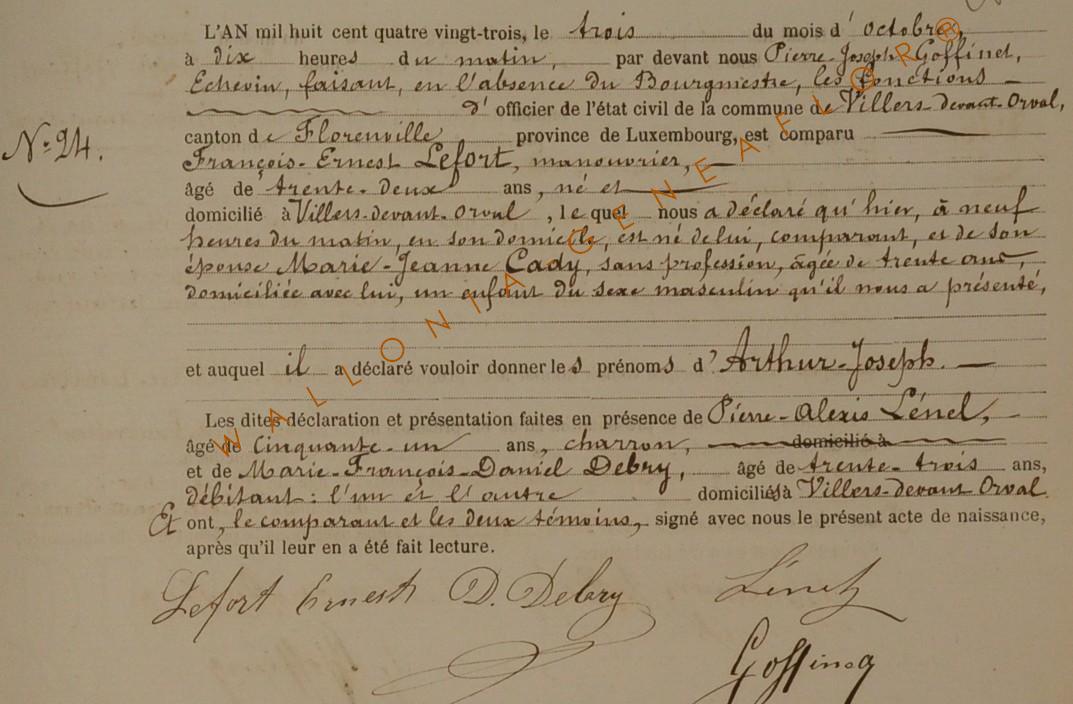 L'AN mil huit cent quatre vingt-trois, le trois du mois d'octobre,
à dix heures du matin, par devant nous Pierre-Joseph Goffinet,
Echevin, faisant, en l'absence du Bourgmestre, les fonctions
d'officier de l'état civil de la commune de Villers-devant-Orval,
N° 24.
canton de Florenville province de Luxembourg, est comparu
François-Ernest Lefort, manouvrier,
âgé de trente-deux ans, né et
domicilié à Villers-devant-Orval, lequel nous a déclaré qu'hier, à neuf
heures du matin, en son domicile, est né de lui, comparant, et de son
épouse Marie-Jeanne Cady, sans profession, âgée de trente ans,
domiciliée avec lui, un enfant du sexe masculin qu'il nous a présenté,
et auquel il a déclaré vouloir donner les prénoms d'Arthur-Joseph.
Les dites déclaration et présentation faites en présence de Pierre-Alexis Lénel,
âgé de cinquante-un ans, charron, domicilié à
et de Marie-François-Daniel Debry, âgé de trente-trois ans,
débitant: l'un et l'autre domiciliés à Villers-devant-Orval.
Et ont, le comparant et les deux témoins, signé avec nous le présent acte de naissance,
après qu'il leur en a été fait lecture.
Lefort Ernest D. Debry Lénel
WALLONIA-GENEAFLOR®